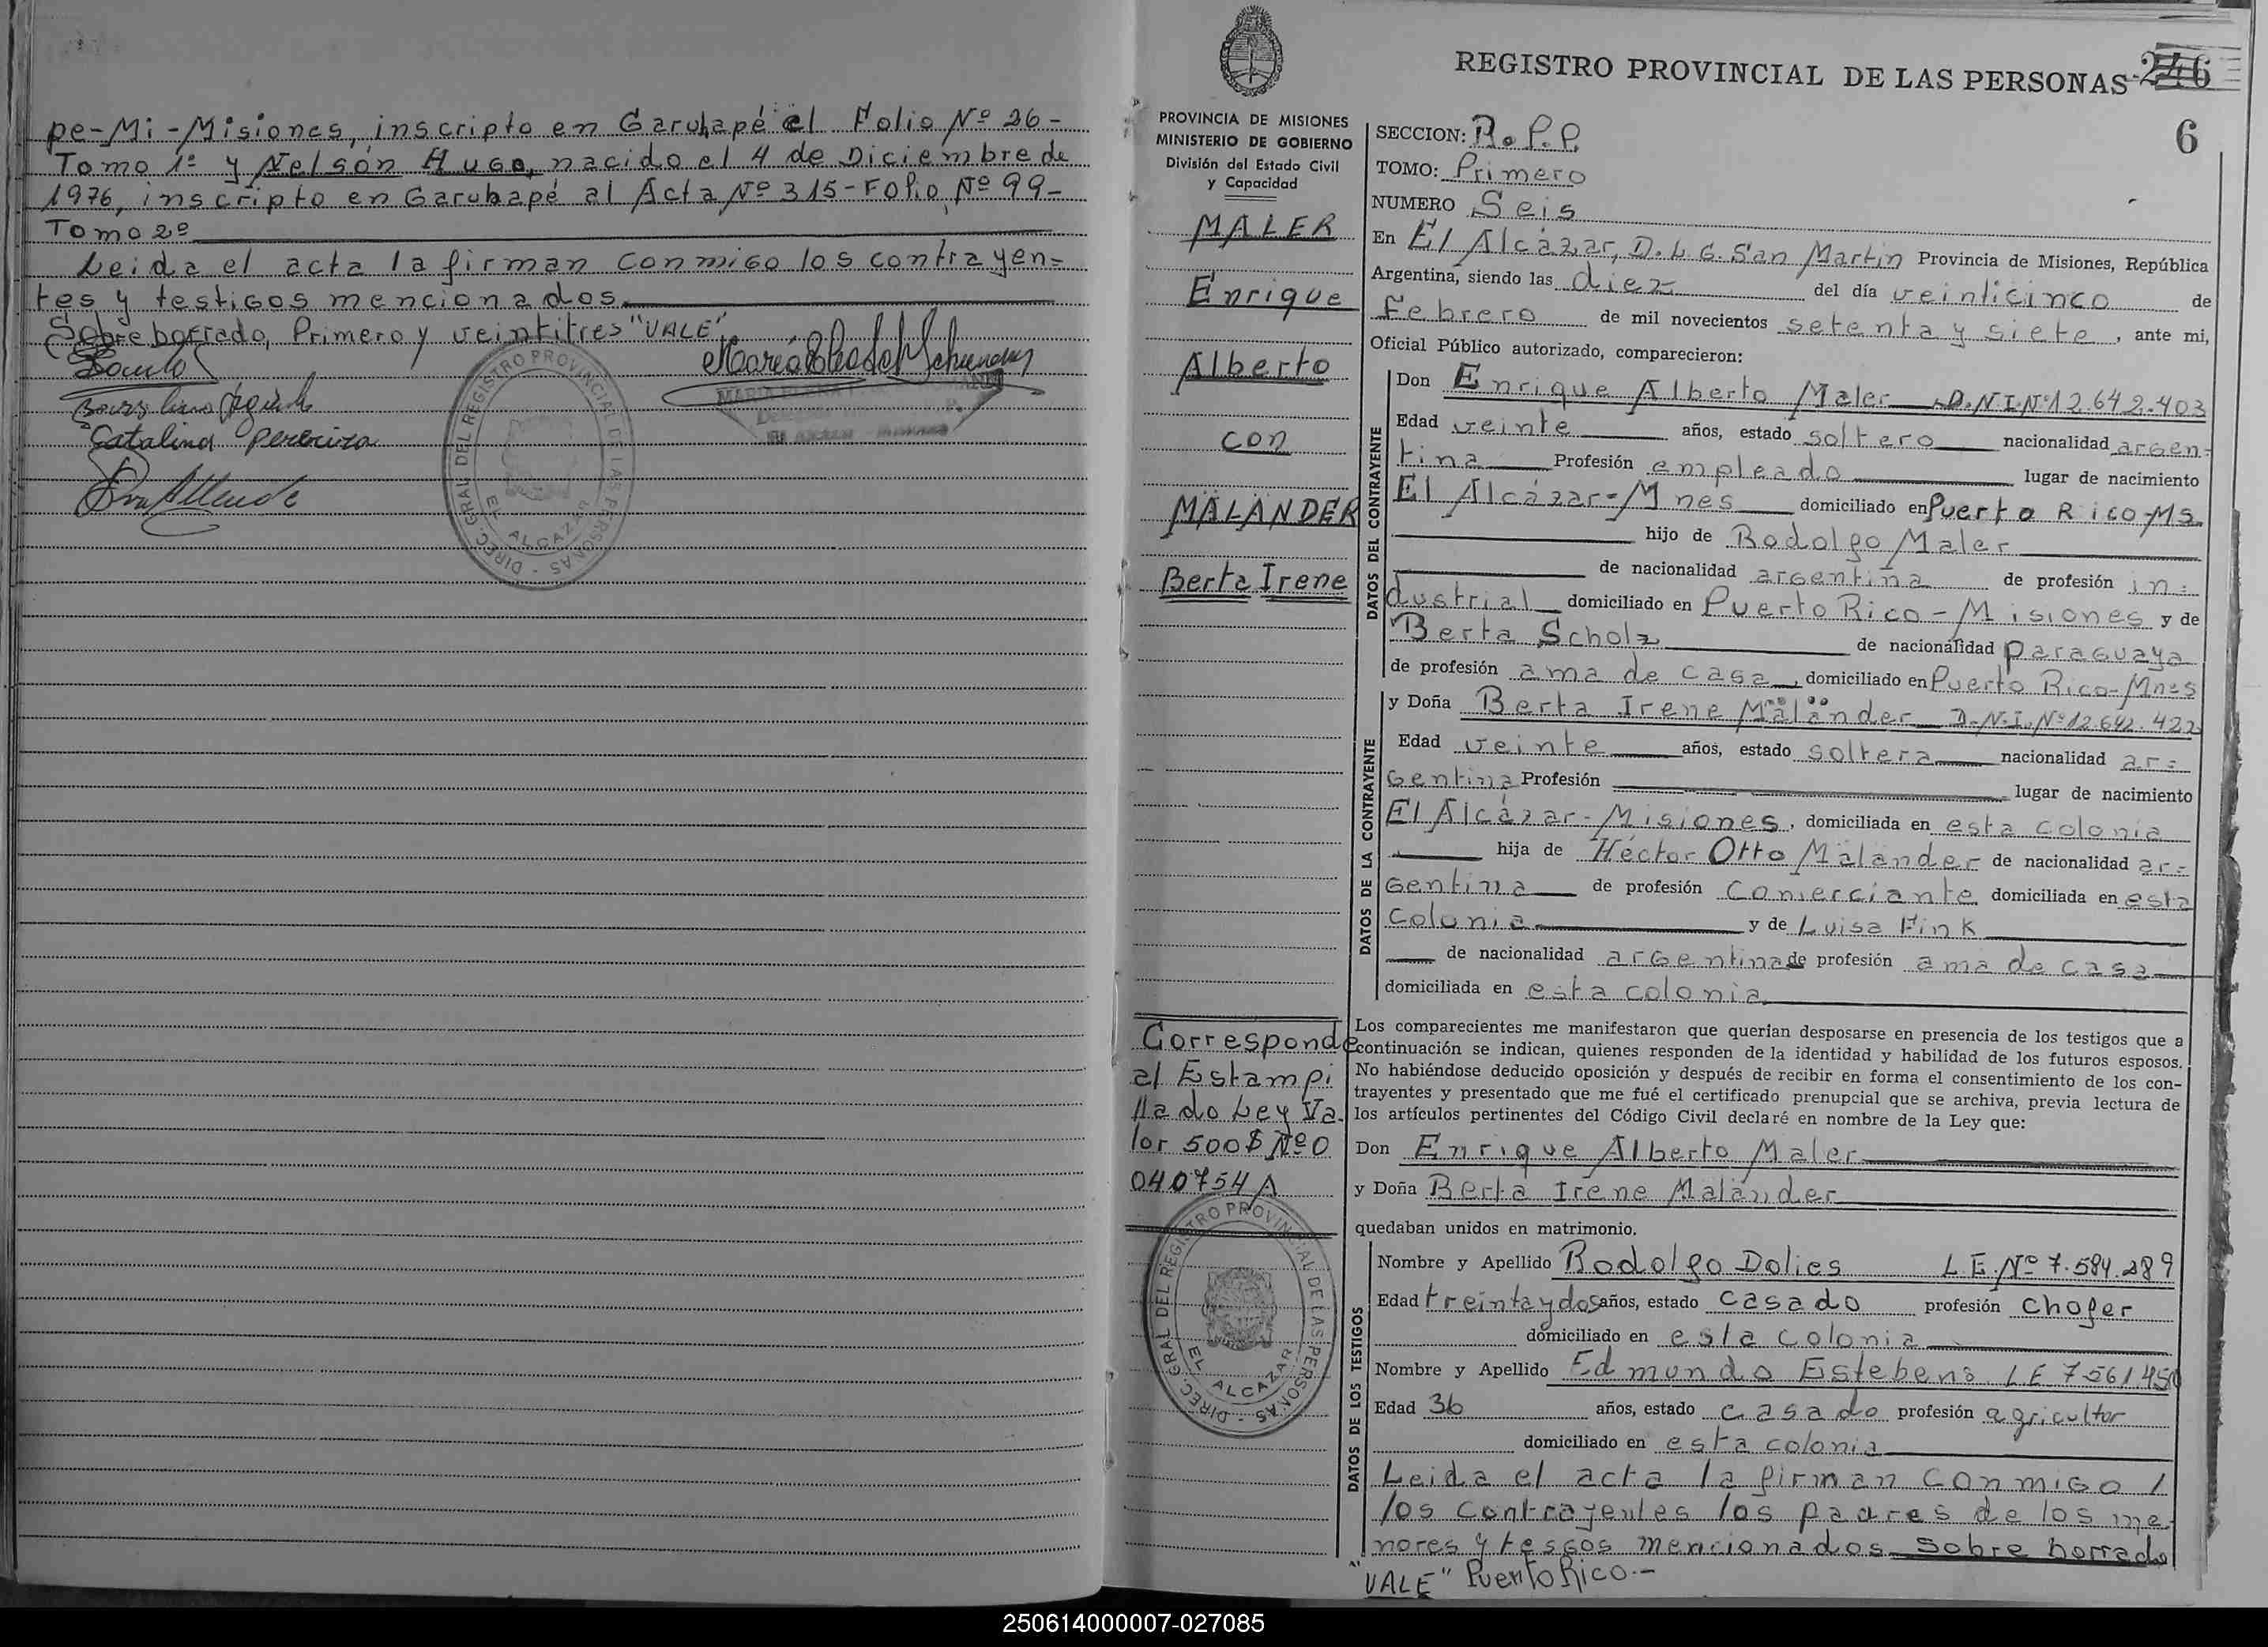 pe-Mi-Misiones, inscripto en Garuhapé el Folio Nº 26-
Tomo 1º y Nelsón Hugo, nacido el 4 de Diciembre de
1976, inscripto en Garuhapé al Acta Nº 315-Folio Nº 99-
Tomo 2º
Leida el acta la firman conmigo los contrayen=
tes y testigos mencionados.
Sobre borrado, Primero y veintitres "VALE"
Catalina Pereira
DIREC. GRAL DEL REGISTRO PROVINCIAL DE LAS PERSONAS - EL ALCAZAR
REGISTRO PROVINCIAL DE LAS PERSONAS-246
6
PROVINCIA DE MISIONES
MINISTERIO DE GOBIERNO
División del Estado Civil
y Capacidad
MALER
Enrique
Alberto
con
MÄLÄNDER
Berta Irene
Corresponde
al Estampi
llado Ley Va.
lor 500$ Nº 0
040754A
DIREC. GRAL DEL REGISTRO PROVINCIAL DE LAS PERSONAS - EL ALCAZAR
SECCION: R.P.P.
TOMO: Primero
NUMERO Seis
En El Alcázar, D.L.G. San Martín Provincia de Misiones, República
Argentina, siendo las diez del día veinticinco de
Febrero de mil novecientos setenta y siete, ante mi,
Oficial Público autorizado, comparecieron:
DATOS DEL CONTRAYENTE
Don Enrique Alberto Maler D.N.I.Nº12.642.403
Edad veinte años, estado soltero nacionalidad argen-
tina Profesión empleado lugar de nacimiento
El Alcázar-Mnes domiciliado en Puerto Rico-Ms.
hijo de Rodolfo Maler
de nacionalidad argentina de profesión in=
dustrial domiciliado en Puerto Rico-Misiones y de
Berta Scholz de nacionalidad paraguaya
de profesión ama de casa, domiciliado en Puerto Rico-Mnes
DATOS DE LA CONTRAYENTE
y Doña Berta Irene Mäländer D.N.I.Nº12.642.422
Edad veinte años, estado soltera nacionalidad ar=
gentina Profesión lugar de nacimiento
El Alcázar-Misiones, domiciliada en esta colonia
hija de Héctor Otto Mäländer de nacionalidad ar=
gentina de profesión comerciante domiciliada en esta
colonia y de Luisa Fink
de nacionalidad argentina de profesión ama de casa
domiciliada en esta colonia.
Los comparecientes me manifestaron que querían desposarse en presencia de los testigos que a
continuación se indican, quienes responden de la identidad y habilidad de los futuros esposos.
No habiéndose deducido oposición y después de recibir en forma el consentimiento de los con-
trayentes y presentado que me fué el certificado prenupcial que se archiva, previa lectura de
los artículos pertinentes del Código Civil declaré en nombre de la Ley que:
Don Enrique Alberto Maler
y Doña Berta Irene Maländer
quedaban unidos en matrimonio.
DATOS DE LOS TESTIGOS
Nombre y Apellido Rodolfo Dolies L.E.Nº 7.584.289
Edad treinta y dos años, estado casado profesión chofer
domiciliado en esta colonia
Nombre y Apellido Edmundo Estebens LE 7561450
Edad 36 años, estado casado profesión agricultor
domiciliado en esta colonia
Leida el acta la firman conmigo
los contrayentes los padres de los me-
nores y tesgos mencionados Sobre borrado
"VALE" Puerto Rico.-
250614000007-027085